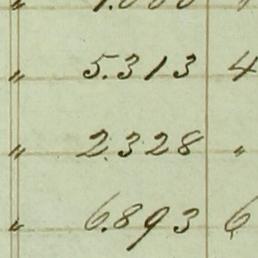 " 5.313 4
" 2.328 "
" 6.893 6